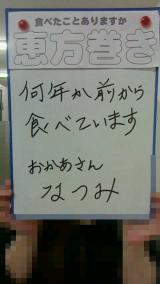 食べたことありますか
恵方巻き
何年か前から
食べています
おかあさん
なつみ